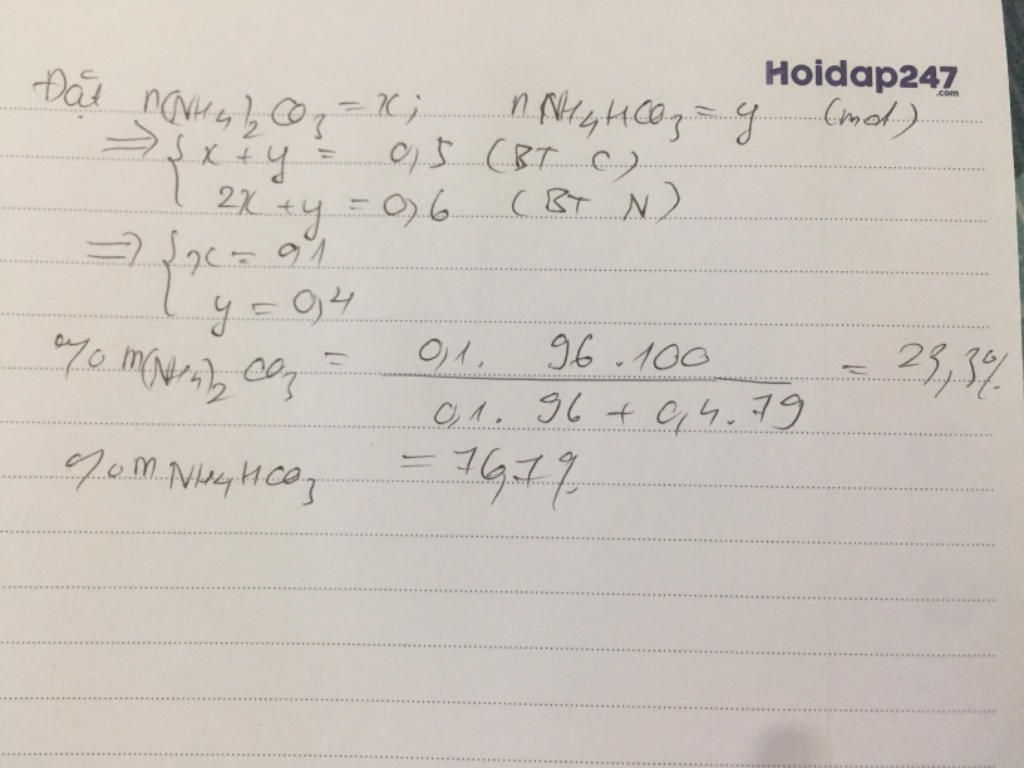 Hoidap247
.com
Đặt n(NH4)2CO3 = x; nNH4HCO3 = y (mol)
=> { x + y = 0,5 (BT C)
2x + y = 0,6 (BT N)
=> { x = 0,1
y = 0,4
%m(NH4)2CO3 = 0,1. 96.100 / 0,1. 96 + 0,4.79 = 23,3%
%m NH4HCO3 = 76,7%